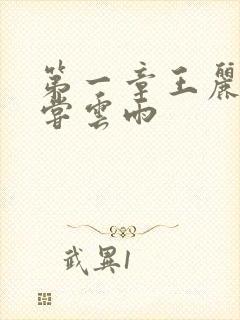 第一章王麗
嘗雲雨
武異1